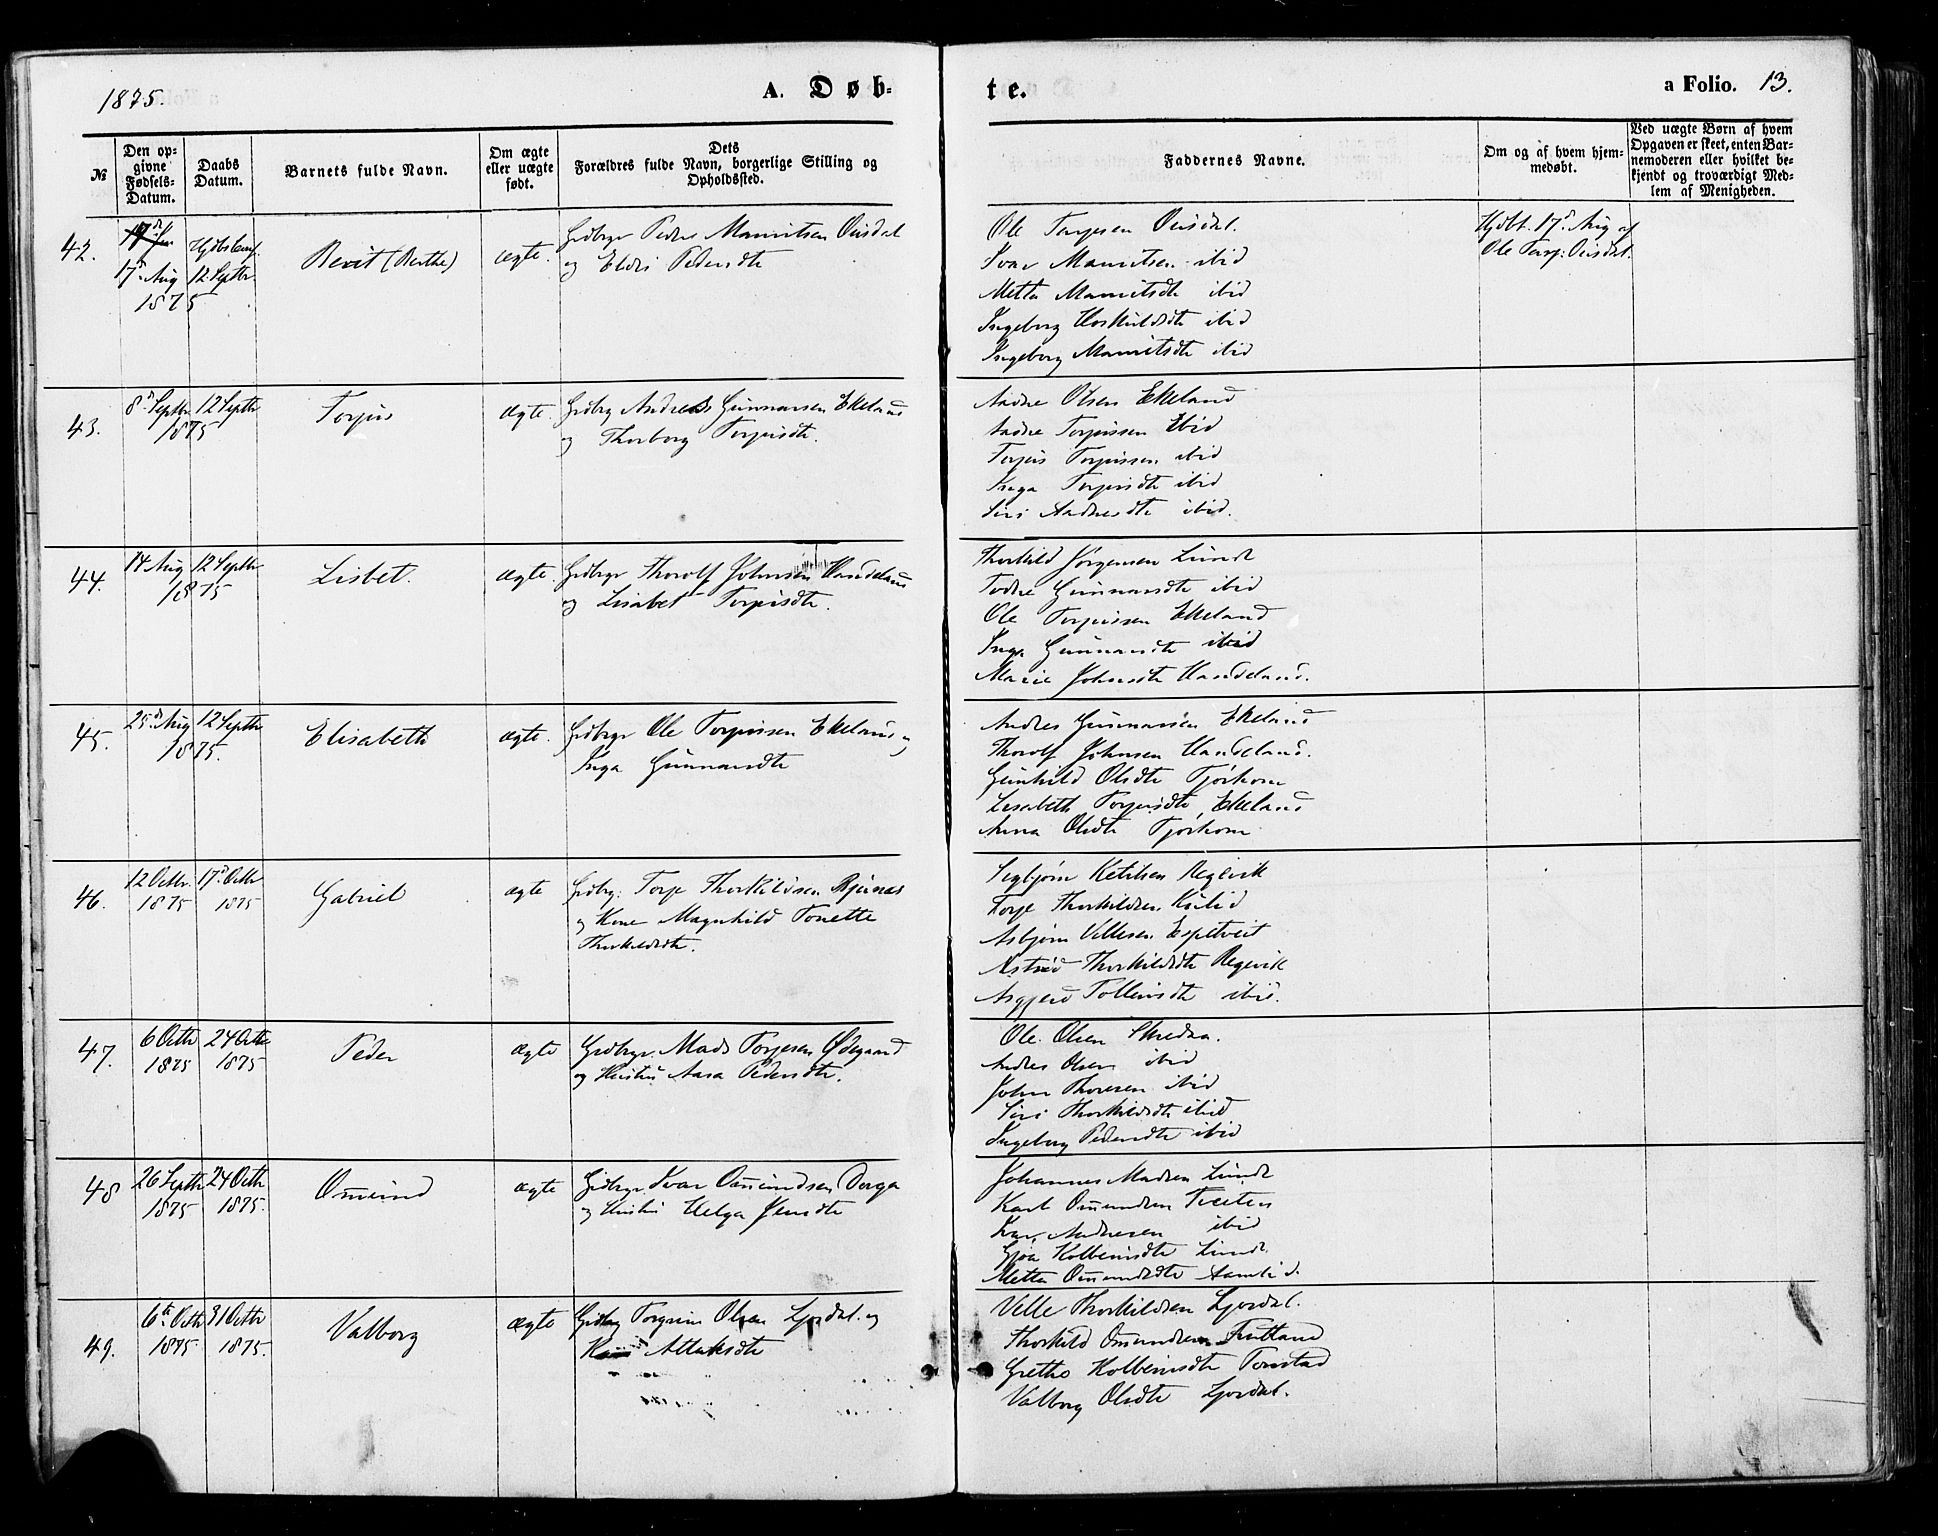 1875.
A. Døb-
te.
a Folio. 13.
№
Den op-
givne
Fødsels-
Datum.
Daabs
Datum.
Barnets fulde Navn.
Om ægte
eller uægte
født.
Dets
Forældres fulde Navn, borgerlige Stilling og
Opholdssted.
Faddernes Navne.
Om og af hvem hjem-
medøbt.
Ved uægte Børn af hvem
Opgaven er skeet, enten Bar-
nemoderen eller hvilket be-
kjendt og troværdigt Med-
lem af Menigheden.
42.
17d Aug
1875
12 Septbr
Berit (Berthe)
ægte.
Grdbrgr Peder Mauritsen Ousdal
og Eldri Pedersdtr
Ole Torjesen Ousdal.
Ivar Mauritsen ibid
Metta Mauritsdtr ibid
Ingeborg Hoskuldsdtr ibid
Ingeborg Mauritsdtr ibid
Hjdbt. 17d Aug af
Ole Torj: Ousdal.
43.
8d Septbr 12 Septbr
1875
Torjus
ægte.
Grdbrg Andreas Gunnarsen Ekeland
og Thorborg Torjusdtr.
Aadne Olsen Ekeland
Aadne Torjussen Ibid
Torjus Torjussen ibid
Inga Torjusdtr ibid
Siri Aadnesdtr ibid.
44.
14 Aug 12 Septbr
1875
Lisbet.
ægte.
Grdbrgr Thorolf Johnsen Handeland
og Lisabet Torjusdtr.
Thorkild Jørgensen Lunde
Todne Gunnarsdtr ibid
Ole Torjussen Ekeland
Inga Gunnarsdtr ibid
Marie Johnsdtr Handeland.
45.
25d Aug 12 Septbr
1875.
Elisabeth
ægte.
Grdbrgr Ole Torjussen Ekeland og
Inga Gunnarsdtr
Andres Gunnarsen Ekeland
Thorolf Johnsen Handeland.
Gunhild Olsdtr Tjørhom
Lisabeth Torjusdtr Ekeland
Anna Olsdtr Tjørhom
46.
12 Octbr.
1875
17d Octbr
1875
Gabriel
ægte
Grdbrg: Torje Thorkildsen Bjunes
og Kone Magnhild Tonette
Thorkildsdtr.
Sigbjørn Ketilsen Regevik
Torje Thorkildsen Kulid
Asbjørn Vellesen Espetveit
Astrid Thorkildsdtr Regevik
Asgjerd Tolleivsdtr ibid.
47.
6 Octbr
1875
24 Octbr
1875
Peder
Ægte
Grdbrgr. Mads Torjesen Ødegaard
og Hustru Aasa Pedersdtr.
Ole Olsen Skredaa.
Andres Olsen ibid
John Thoresen ibid
Siri Thorkildsdtr ibid
Ingeborg Pedersdtr ibid
48
26 Septbr
1875
24 Octbr
1875.
Omund
ægte
Grdbrgr Ivar Omundsen Dorga
og Hustru Helga Jensdtr
Johannes Madsen Lunde
Karl Omundsen Tveiten
Ivar Andresen ibid
Gjøa Kolbeinsdtr Lunde
Metta Omundsdtr Aamlid.
49.
6te Octbr
1875
31 Octbr
1875.
Valborg
Ægte
Grdbrg Torgrim Olsen Ljosdal og
Attaksdtr
Velle Thorkildsen Ljosdal.
Thorkild Omundsen Fintland
Grethe Kolbeinsdtr Tonstad
Valborg Olsdtr Ljosdal.